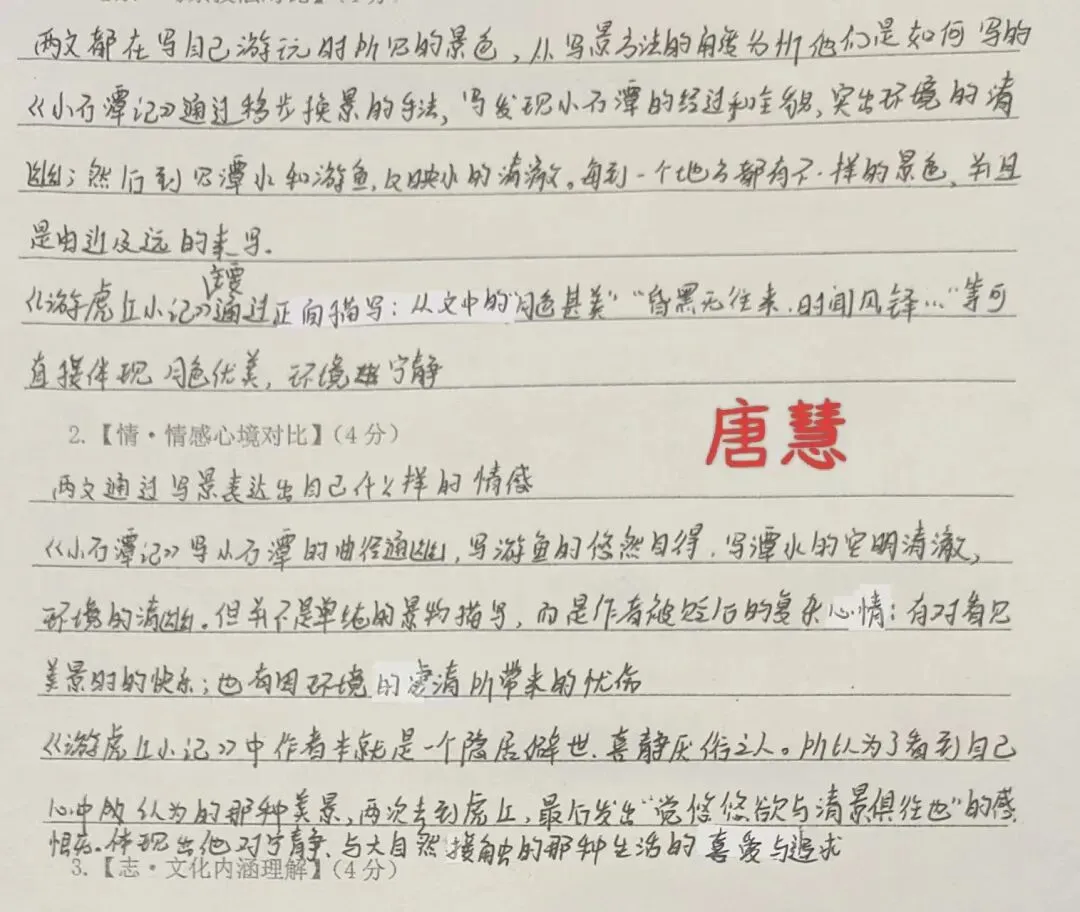 两文都在写自己游玩时所见的景色,从写景方法的角度分析他们是如何写的
《小石潭记》通过移步换景的手法,写发现小石潭的经过和全貌,突出环境的清
幽;然后到见潭水和游鱼,反映水的清澈。每到一个地方都有不一样的景色,并且
是由近及远的来写.
主要
《游虎丘小记》通过正面描写:从文中的"月色甚美""昏黑无往来,时闻风铎…"等可
直接体现月色优美,环境 宁静
2.【情·情感心境对比】(4分)
唐慧
两文通过写景表达出自己什么样的情感
《小石潭记》写小石潭的曲径通幽,写游鱼的悠然自得,写潭水的空明清澈,
环境的清幽。但并不是单纯的景物描写,而是作者被贬后的复杂心情:有对看见
美景时的快乐;也有因环境的凄清所带来的忧伤
《游虎丘小记》中作者本就是一个隐居僻世、喜静厌俗之人。所以为了看到自己
心中 认为的那种美景,两次去到虎丘,最后发出"觉悠悠欲与清景俱往也"的感
体现出他对宁静、与大自然接触的那种生活的喜爱与追求
3.【志·文化内涵理解】(4分)